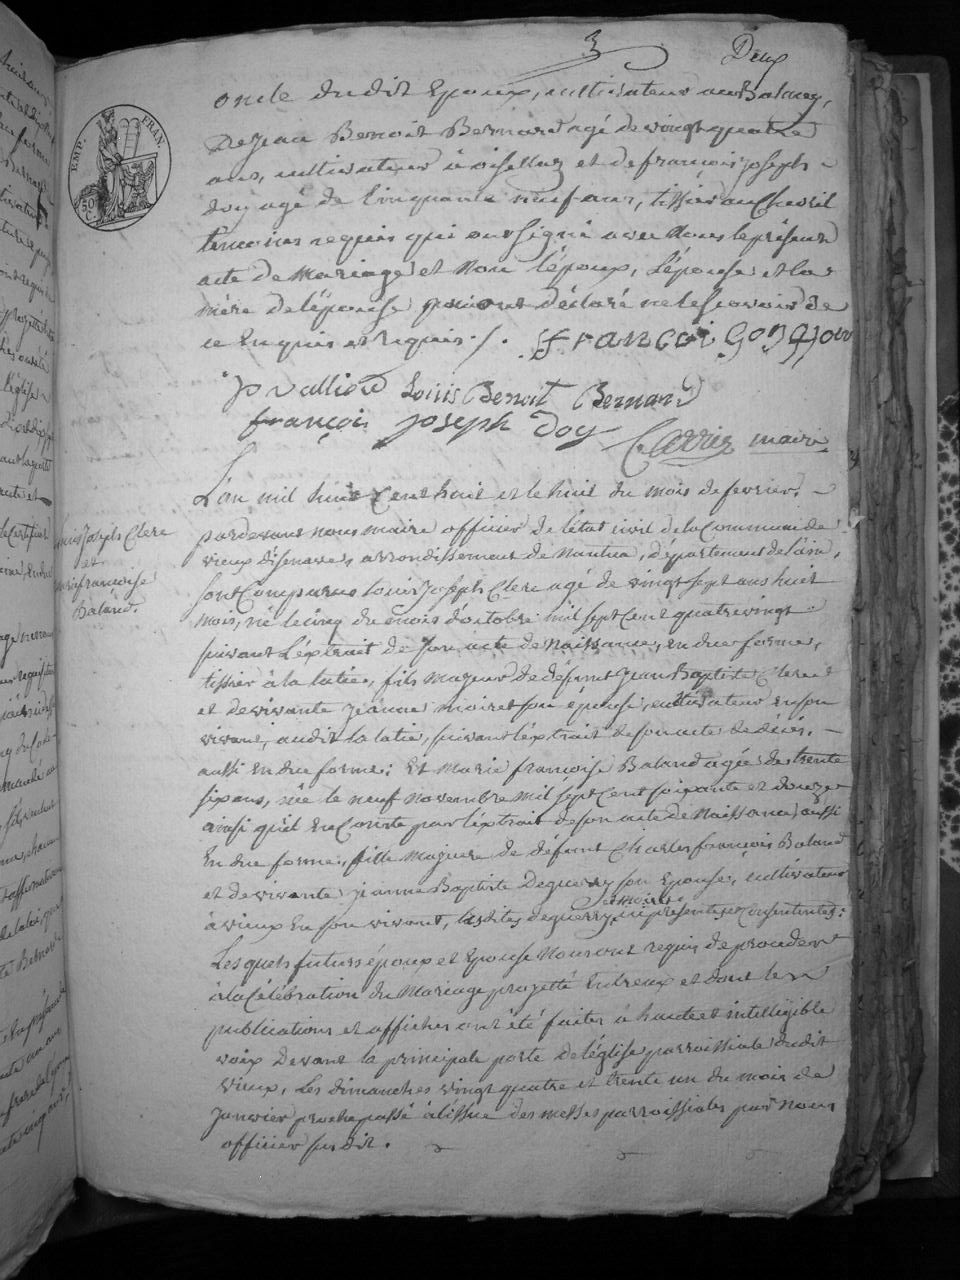 3
Deux
EMP. FRAN.
50 C.
oncle dudit Epoux, cultivateur au Balmey,
De Jean Benoit Bernard agé de vingt quatre
ans, cultivateur à oisellaz et de françois joseph
doy agé de Cinquante neuf ans, tissier au Chevril
temoins requis qui ont signé avec Nous le présent
acte de Mariage et Non l'époux, L'épouse et la
mère de l'épouse pour ont déclaré ne le scavoir de
ce Enquis et requis ./.
françoi gonjjou
J vallière Louis Benoit Bernard
françois joseph doy
maire
L'an mil huit Cent huit et le huit du mois de fevrier,
pardevant nous maire officier de l'état civil de la Commune de
vieux d'isenave, arrondissement de Nantua, département de l'ain,
sont Comparus Louis Joseph Clerc agé de vingt sept ans huit
mois, né le cinq du mois d'octobre mil sept Cent quatrevingt
suivant L'extrait de son acte de Naissance, en due forme,
tissier à la latie, fils majeur de défunt Jean Baptiste Clerc
et de vivante jeanne moiret son épouse, cultivateur en son
vivant, audit la latie, suivant l'extrait de son acte de décès,
aussi En due forme; Et Marie françoise Baland agée de trente
six ans, née le neuf Novembre mil sept Cent soixante et douze
ainsi qu'il En Conste par l'extrait de son acte de Naissance aussi
En due forme, fille majeure de défunt Charles françois Baland
et de vivante jeanne Baptiste Deguerry son Epouse, cultivateur
à vieux En son vivant, lesdites deguerry et moiret ici présentes et Consententes:
Lesquels futurs époux et Epouse Nous ont requis de proceder
à la Célébration du Mariage projetté Entreux et dont les
publications et affiches ont été faites à haute et intelligible
voix Devant la principale porte de l'église parroissiale dudit
vieux, Les dimanches vingt quatre et trente un du mois de
Janvier proche passé à l'issue des messes parroissiales par Nous
officier susdit.
Louis Joseph Clerc
et
marie françoise
Baland.